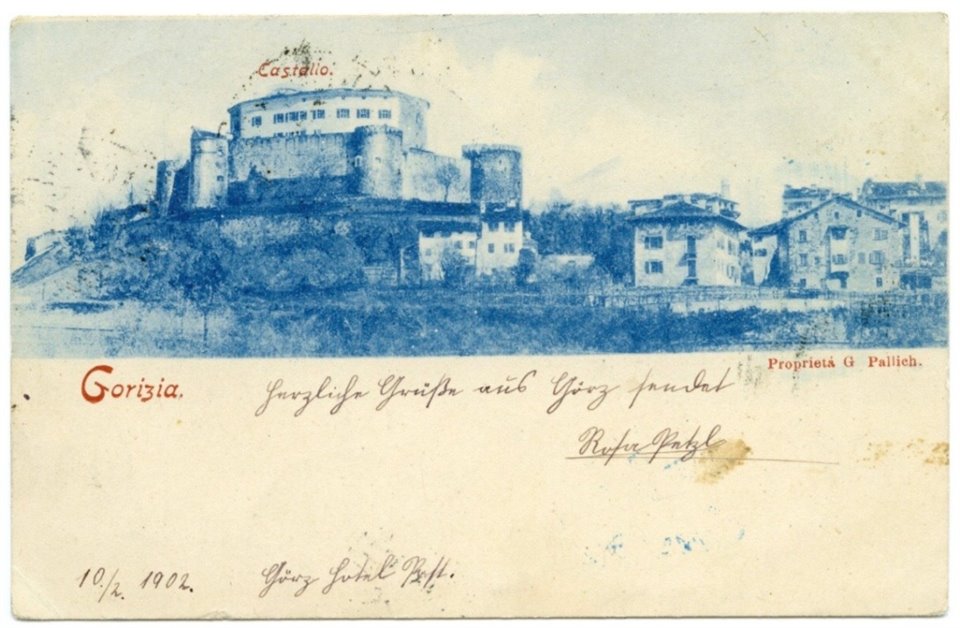 Castello.
Proprietá G Pallich.
Gorizia.
Herzliche Grüße aus Görz sendet
Rosa Petzl
10./2. 1902.
Görz Hotel Post.